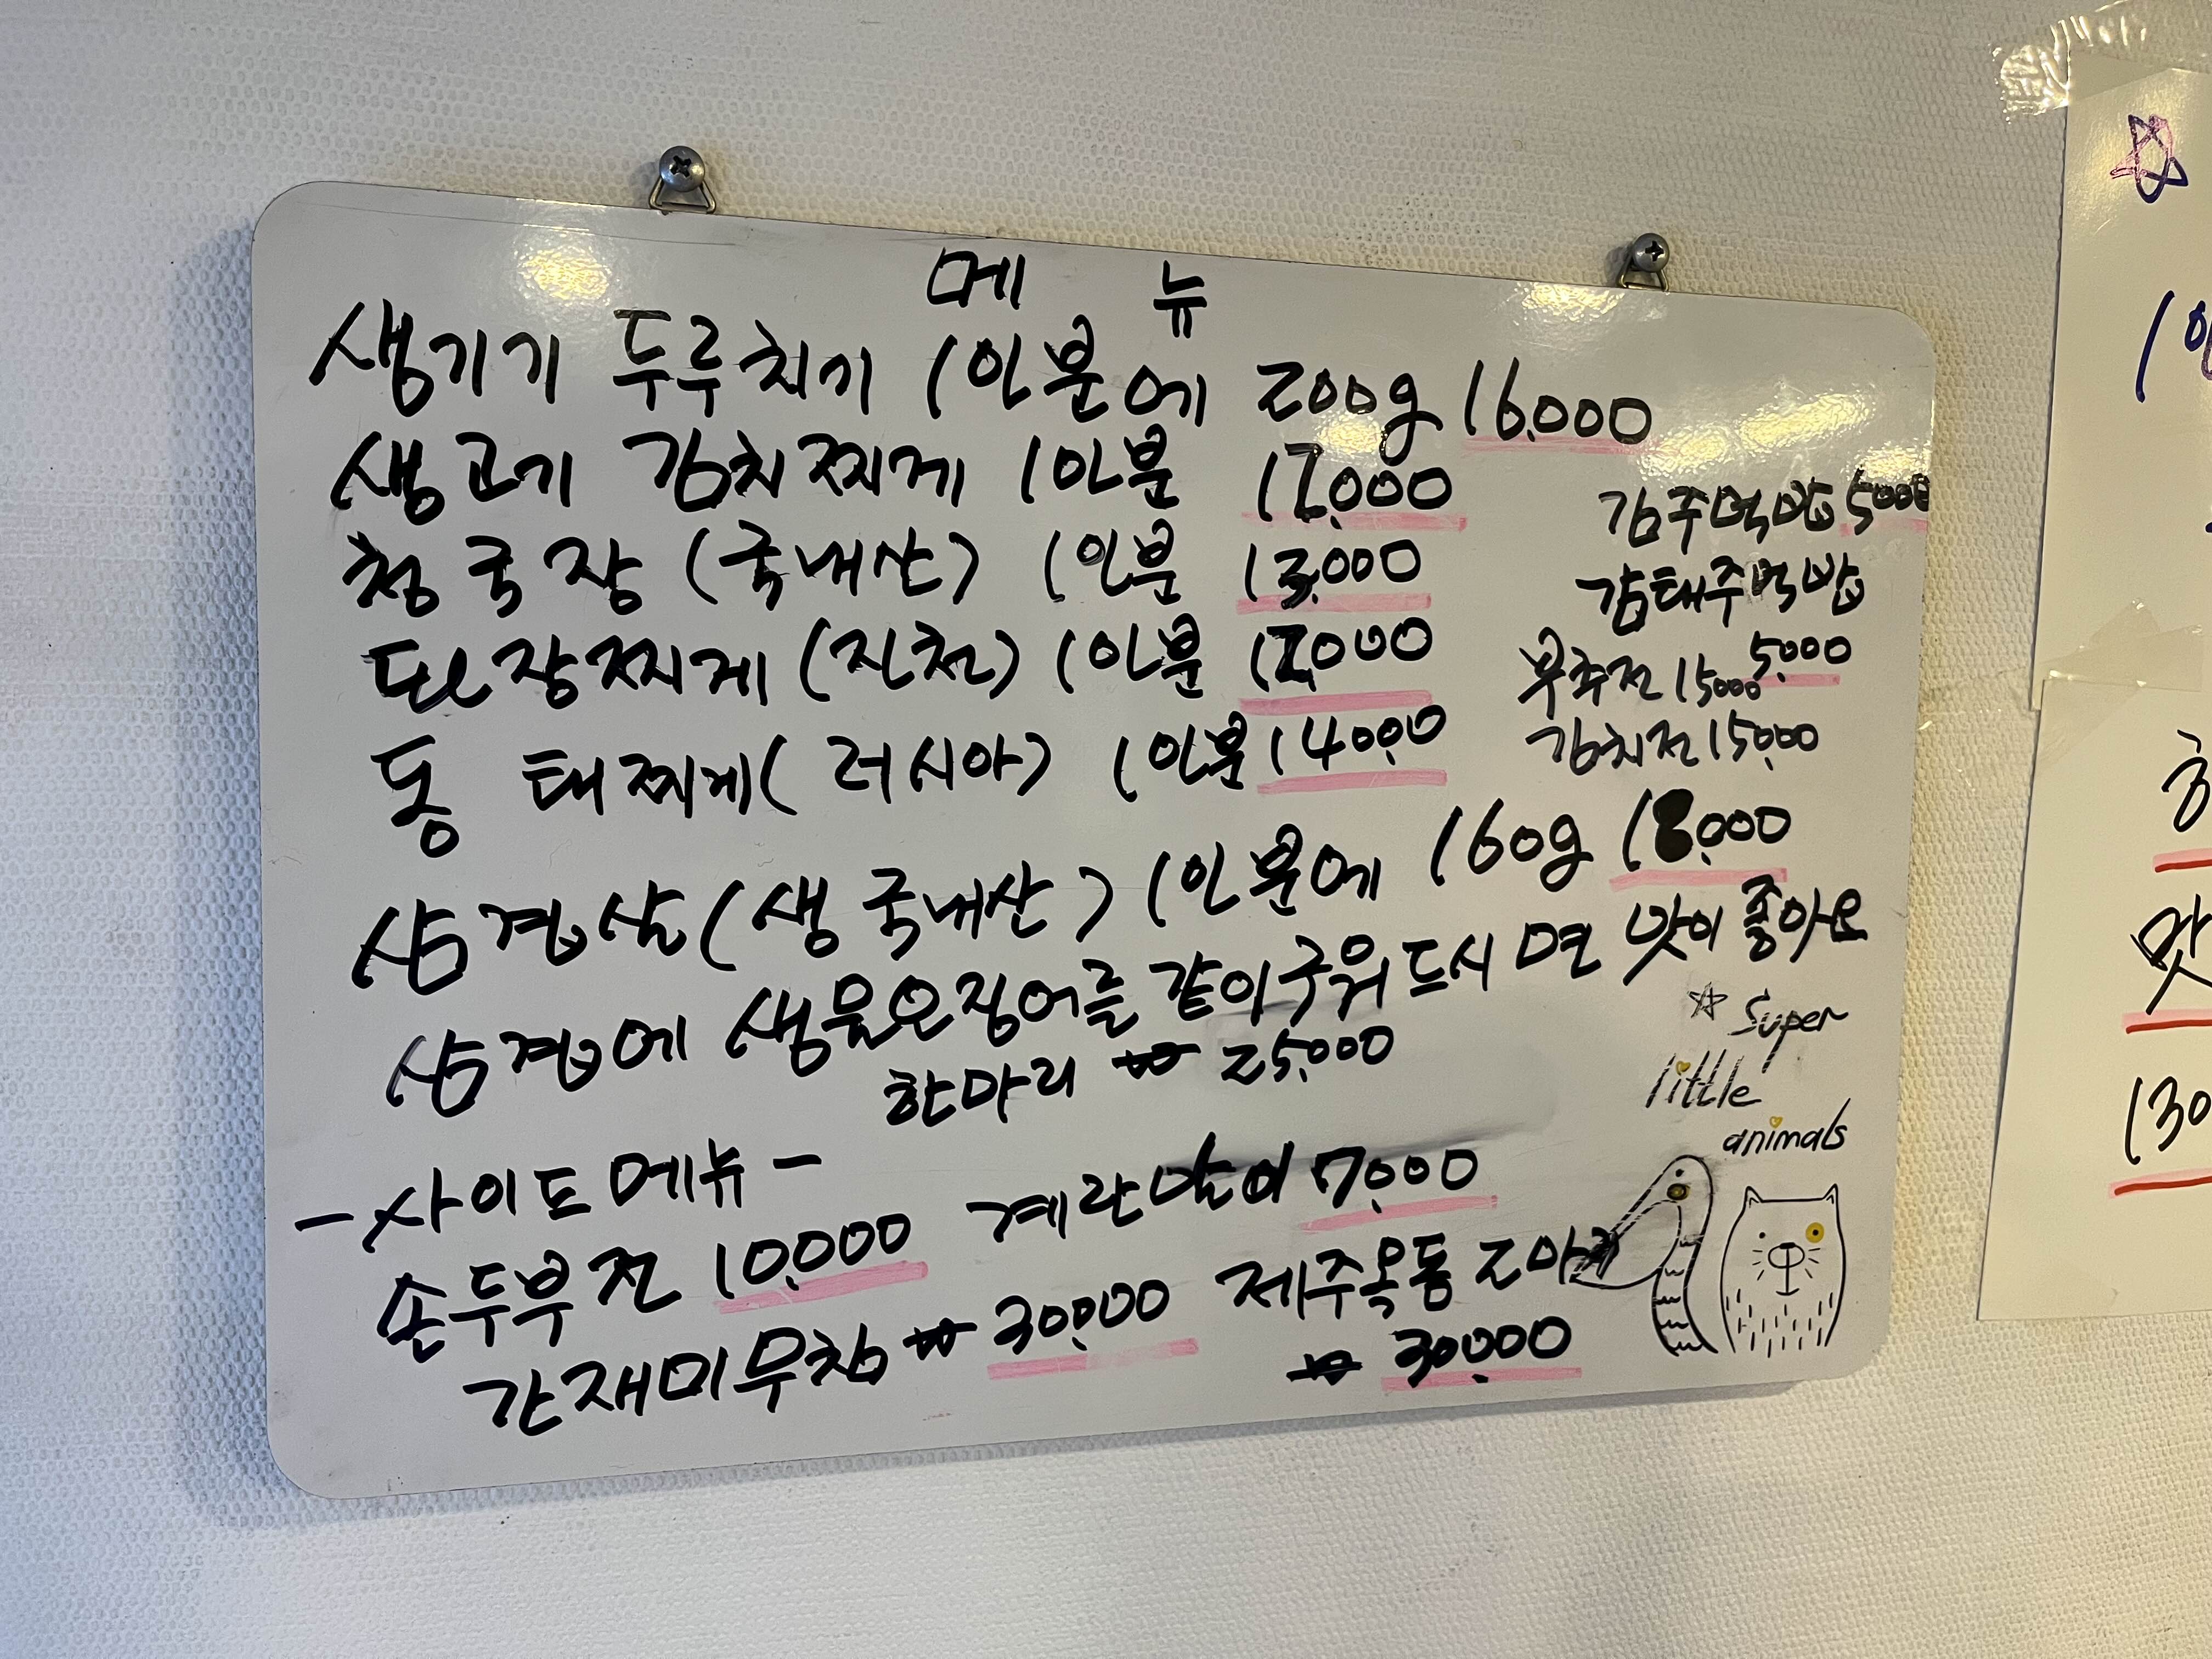 메 뉴
생기기 두루치기 1인분에 200g 16,000
생고기 김치찌게 1인분 12,000
청국장 (국내산) 1인분 13,000
된장찌게 (진천) 1인분 12,000
동 태찌게( 러시아) 1인분 14,000
김주먹밥 5000
감태주먹밥
5,000
부추전 15000
김치전 15,000
삼겹살(생 국내산) 1인분에 160g 18,000
삼겹에 생물오징어를 같이구워드시면 맛이 좋아요
한마리 ₩ 25,000
-사이드메뉴-
손두부전 10,000 계란말이 7,000
간재미무침 ₩ 30,000 제주옥돔 2마리
₩ 30,000
☆ Super
little
animals
☆
맛
130